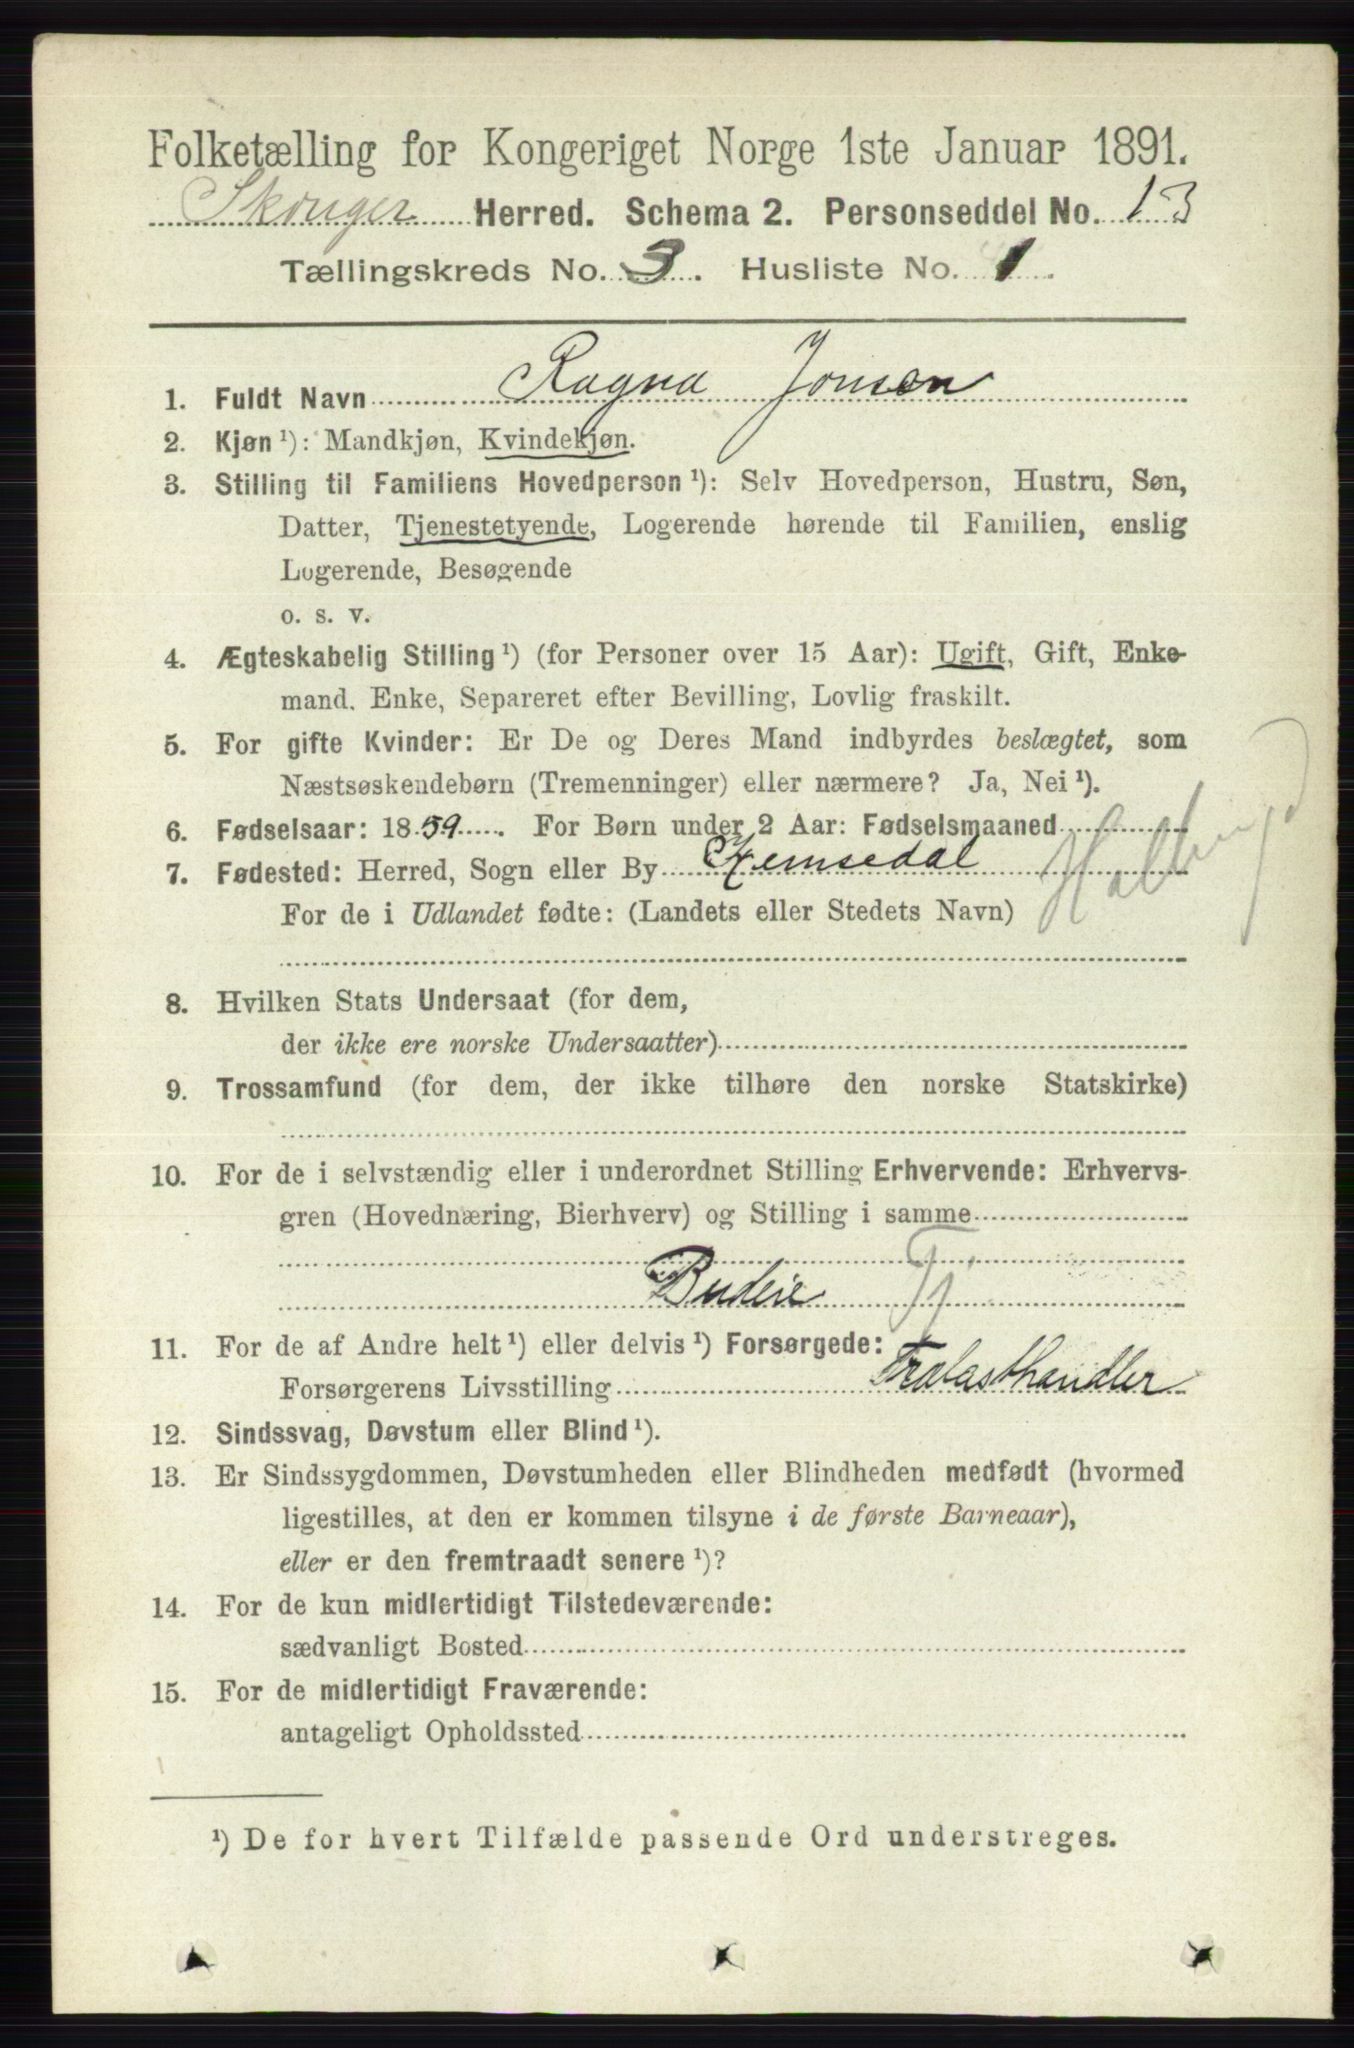 Folketælling for Kongeriget Norge 1ste Januar 1891.
Skouger Herred. Schema 2. Personseddel No. 13
Tællingskreds No. 3. Husliste No. 1.
1. Fuldt Navn Ragna Jonsen
2. Kjøn ¹): Mandkjøn, Kvindekjøn.
3. Stilling til Familiens Hovedperson ¹): Selv Hovedperson, Hustru, Søn,
Datter, Tjenestetyende, Logerende hørende til Familien, enslig
Logerende, Besøgende
o. s. v.
4. Ægteskabelig Stilling ¹) (for Personer over 15 Aar): Ugift, Gift, Enke-
mand. Enke, Separeret efter Bevilling, Lovlig fraskilt.
5. For gifte Kvinder: Er De og Deres Mand indbyrdes beslægtet, som
Næstsøskendebørn (Tremenninger) eller nærmere? Ja, Nei ¹).
6. Fødselsaar: 1859. For Børn under 2 Aar: Fødselsmaaned
7. Fødested: Herred, Sogn eller By Hemsedal
For de i Udlandet fødte: (Landets eller Stedets Navn)
8. Hvilken Stats Undersaat (for dem,
der ikke ere norske Undersaatter)
9. Trossamfund (for dem, der ikke tilhøre den norske Statskirke)
10. For de i selvstændig eller i underordnet Stilling Erhvervende: Erhvervs-
gren (Hovednæring, Bierhverv) og Stilling i samme
Budeie Tj
11. For de af Andre helt ¹) eller delvis ¹) Forsørgede:
Forsørgerens Livsstilling Trælasthandler
12. Sindssvag, Døvstum eller Blind ¹).
13. Er Sindssygdommen, Døvstumheden eller Blindheden medfødt (hvormed
ligestilles, at den er kommen tilsyne i de første Barneaar),
eller er den fremtraadt senere ¹)?
14. For de kun midlertidigt Tilstedeværende:
sædvanligt Bosted
15. For de midlertidigt Fraværende:
antageligt Opholdssted
¹) De for hvert Tilfælde passende Ord understreges.